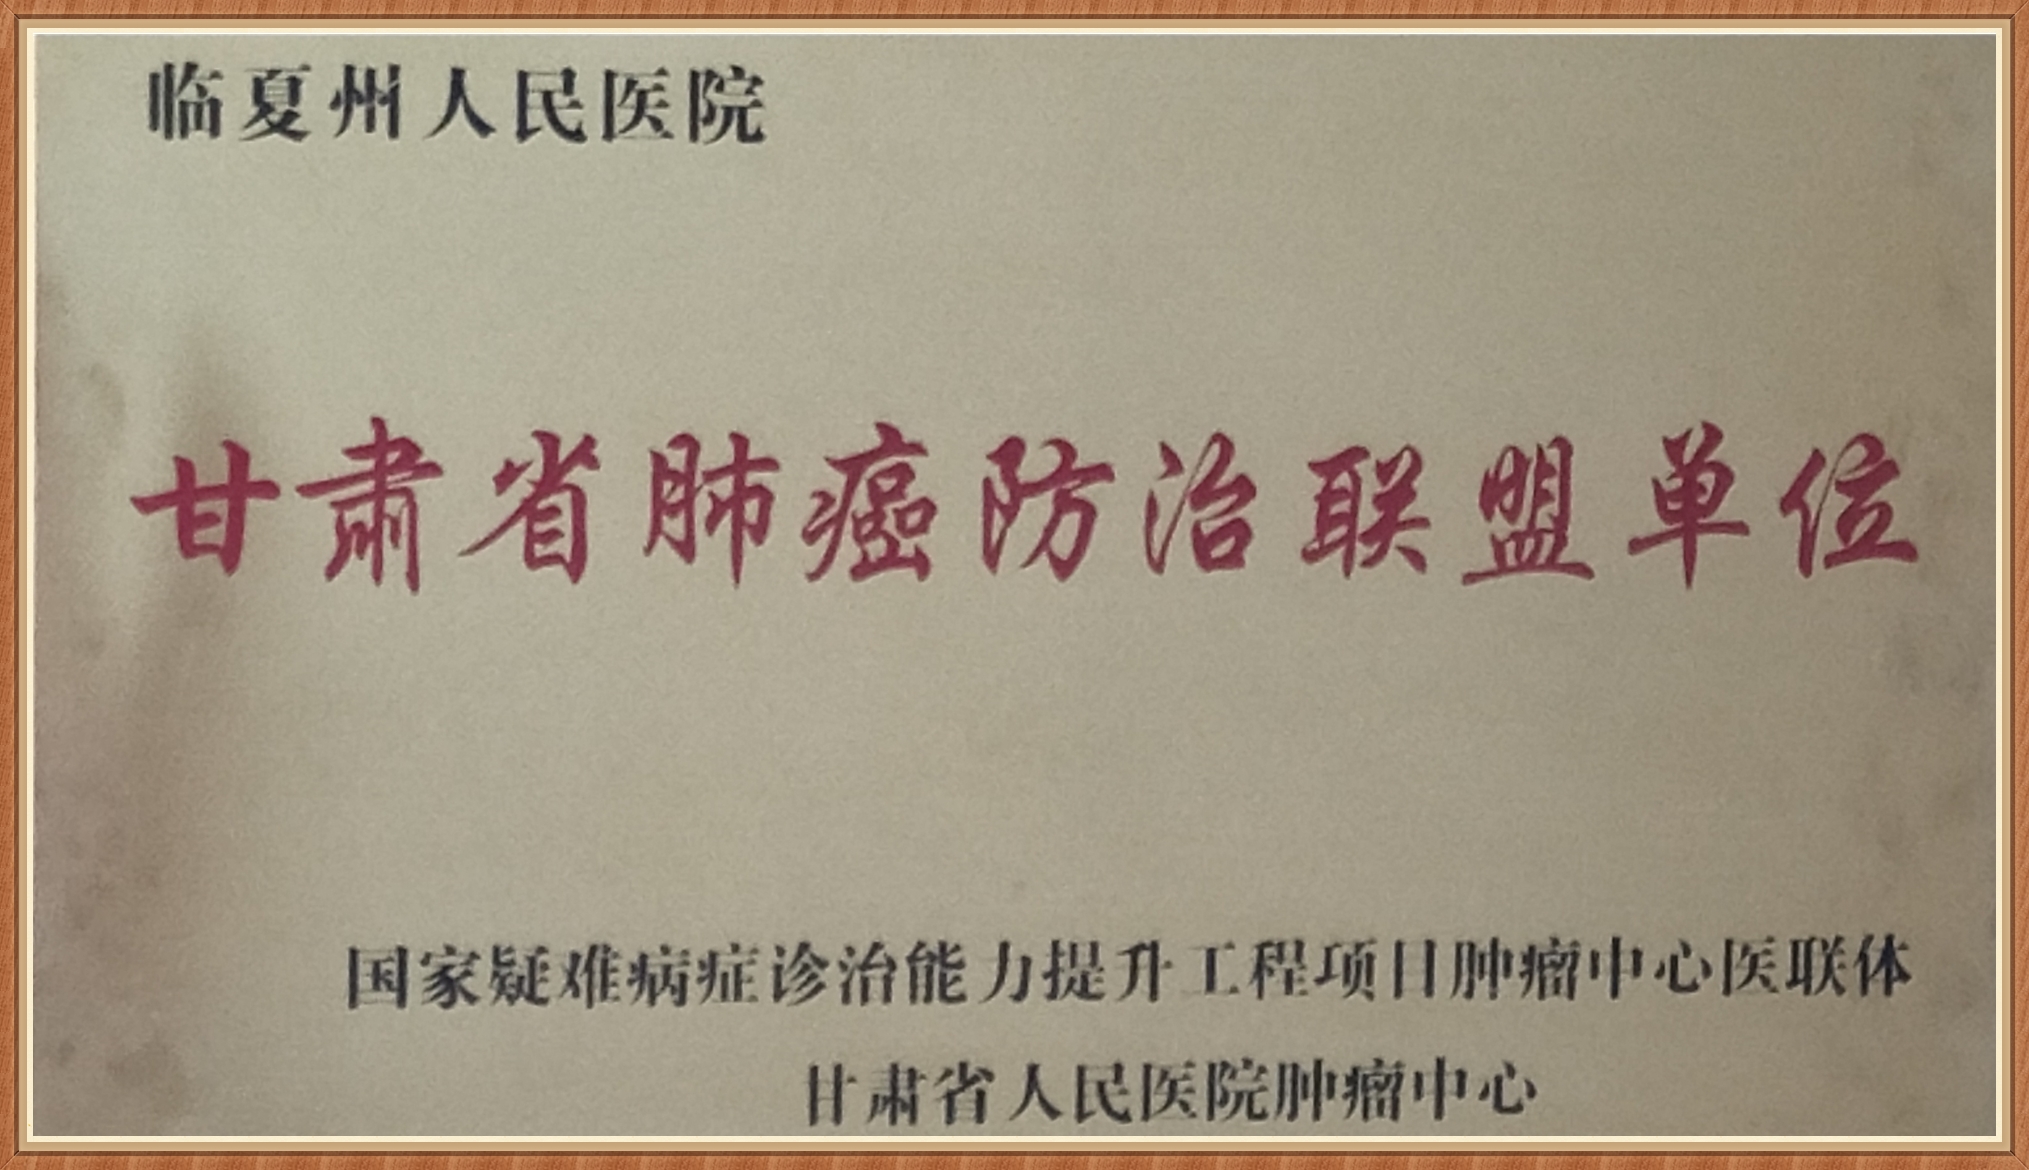 临夏州人民医院
甘肃省肺癌防治联盟单位
国家疑难病症诊治能力提升工程项目肿瘤中心医联体
甘肃省人民医院肿瘤中心